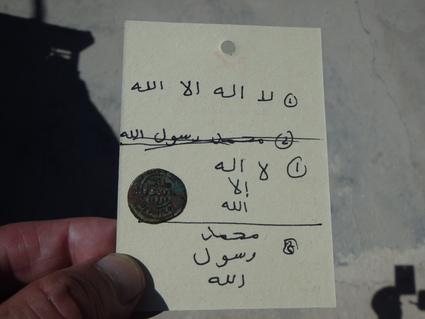 ① لا اله الا الله
② محمد رسول الله
① لا اله
إلا
الله
② محمد
رسول
الله